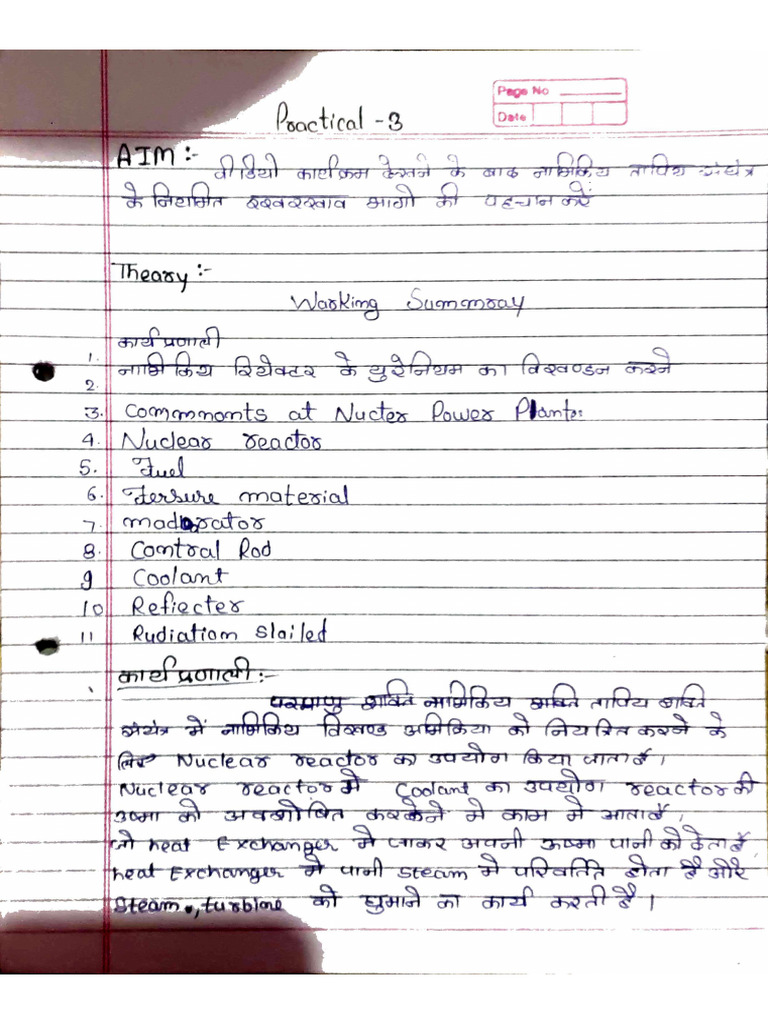 Page No
Date
Practical - 3
AIM :- वीडियो कार्यक्रम देखने के बाद नाभिकिय तापिय संयंत्र
के नियमित रखरखाव भागो की पहचान करें
Theary :-
Warking Summray
कार्यप्रणाली
1.
नाभिकिय रियेक्टर के युरेनियम का विखण्डन करने
2.
3. Commnonts at Nucter Power Plants:
4. Nuclear reactor
5. Fuel
6. Fersure material
7. madorator
8. Comtral Rod
9 Coolant
10 Refiecter
11 Rudiatiom Slailed
कार्यप्रणाली :-
परमाणु शक्ति नाभिकिय शक्ति तापिय शक्ति
संयंत्र में नाभिकिय विखण्ड अभिक्रिया को नियत्रित करने के
लिए Nuclear reactor का उपयोग किया जाता है।
Nuclear reactor मे Coolant का उपयोग reactor की
उष्मा को अवशोषित करकेने मे काम मे आता है,
जो heat Exchanger मे जाकर अपनी ऊष्मा पानी को देता है
heat Exchanger मे पानी steam मे परिवर्तित होता है और
Steam, turbine को घुमाने का कार्य करती है।